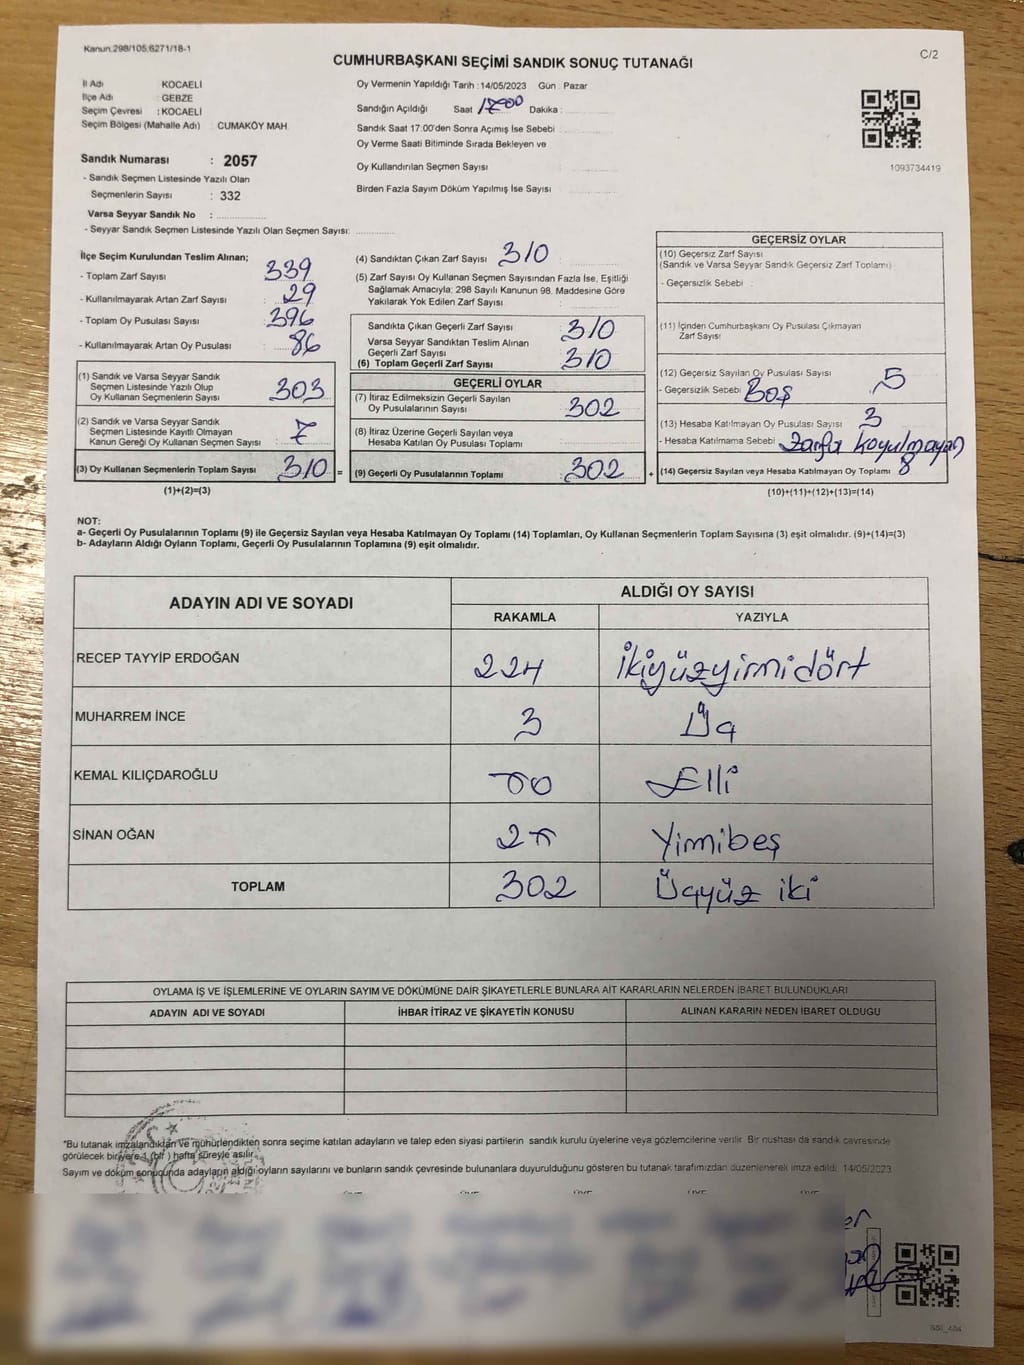 Kanun:298/105,6271/18-1
C/2
CUMHURBAŞKANI SEÇİMİ SANDIK SONUÇ TUTANAĞI
İl Adı KOCAELİ
İlçe Adı : GEBZE
Seçim Çevresi : KOCAELİ
Seçim Bölgesi (Mahalle Adı) : CUMAKÖY MAH.
Sandık Numarası : 2057
- Sandık Seçmen Listesinde Yazılı Olan
Seçmenlerin Sayısı : 332
Varsa Seyyar Sandık No :
- Seyyar Sandık Seçmen Listesinde Yazılı Olan Seçmen Sayısı:
Oy Vermenin Yapıldığı Tarih : 14/05/2023 Gün : Pazar
Sandığın Açıldığı Saat 17:00 Dakika :
Sandık Saat 17.00'den Sonra Açımış İse Sebebi :
Oy Verme Saati Bitiminde Sırada Bekleyen ve
Oy Kullandırılan Seçmen Sayısı
Birden Fazla Sayım Döküm Yapılmış İse Sayısı
1093734419
İlçe Seçim Kurulundan Teslim Alınan;
- Toplam Zarf Sayısı : 339
- Kullanılmayarak Artan Zarf Sayısı : 29
- Toplam Oy Pusulası Sayısı : 396
- Kullanılmayarak Artan Oy Pusulası : 86
(1) Sandık ve Varsa Seyyar Sandık
Seçmen Listesinde Yazılı Olup
Oy Kullanan Seçmenlerin Sayısı : 303
(2) Sandık ve Varsa Seyyar Sandık
Seçmen Listesinde Kayıtlı Olmayan
Kanun Gereği Oy Kullanan Seçmen Sayısı : 7
(3) Oy Kullanan Seçmenlerin Toplam Sayısı : 310 =
(1)+(2)=(3)
(4) Sandıktan Çıkan Zarf Sayısı : 310
(5) Zarf Sayısı Oy Kullanan Seçmen Sayısından Fazla İse, Eşitliği
Sağlamak Amacıyla; 298 Sayılı Kanunun 98. Maddesine Göre
Yakılarak Yok Edilen Zarf Sayısı :
Sandıkta Çıkan Geçerli Zarf Sayısı : 310
Varsa Seyyar Sandıktan Teslim Alınan
Geçerli Zarf Sayısı
(6) Toplam Geçerli Zarf Sayısı 310
GEÇERLİ OYLAR
(7) İtiraz Edilmeksizin Geçerli Sayılan
Oy Pusulalarının Sayısı : 302
(8) İtiraz Üzerine Geçerli Sayılan veya
Hesaba Katılan Oy Pusulası Toplamı
(9) Geçerli Oy Pusulalarının Toplamı : 302 +
GEÇERSİZ OYLAR
(10) Geçersiz Zarf Sayısı
(Sandık ve Varsa Seyyar Sandık Geçersiz Zarf Toplamı)
- Geçersizlik Sebebi :
(11) İçinden Cumhurbaşkanı Oy Pusulası Çıkmayan
Zarf Sayısı
(12) Geçersiz Sayılan Oy Pusulası Sayısı : 5
- Geçersizlik Sebebi Boş
(13) Hesaba Katılmayan Oy Pusulası Sayısı : 3
- Hesaba Katılmama Sebebi : Zarfa koyulmayan
(14) Geçersiz Sayılan veya Hesaba Katılmayan Oy Toplamı 8
(10)+(11)+(12)+(13)=(14)
NOT:
a- Geçerli Oy Pusulalarının Toplamı (9) ile Geçersiz Sayılan veya Hesaba Katılmayan Oy Toplamı (14) Toplamları, Oy Kullanan Seçmenlerin Toplam Sayısına (3) eşit olmalıdır. (9)+(14)=(3)
b- Adayların Aldığı Oyların Toplamı, Geçerli Oy Pusulalarının Toplamına (9) eşit olmalıdır.
ADAYIN ADI VE SOYADI ALDIĞI OY SAYISI
RAKAMLA YAZIYLA
RECEP TAYYİP ERDOĞAN 224 İkiyüzyirmidört
MUHARREM İNCE 3 Üç
KEMAL KILIÇDAROĞLU 50 Elli
SİNAN OĞAN 25 Yirmibeş
TOPLAM 302 Üçyüz iki
OYLAMA İŞ VE İŞLEMLERİNE VE OYLARIN SAYIM VE DÖKÜMÜNE DAİR ŞİKAYETLERLE BUNLARA AİT KARARLARIN NELERDEN İBARET BULUNDUKLARI
ADAYIN ADI VE SOYADI İHBAR İTİRAZ VE ŞİKAYETİN KONUSU ALINAN KARARIN NEDEN İBARET OLDUGU
*Bu tutanak imzalandıktan ve mühürlendikten sonra seçime katılan adayların ve talep eden siyasi partilerin sandık kurulu üyelerine veya gözlemcilerine verilir. Bir nushası da sandık çevresinde
görülecek bir yere 1 (bir) hafta süreyle asılır.
Sayım ve döküm sonucunda adayların aldığı oyların sayılarını ve bunların sandık çevresinde bulunanlara duyurulduğunu gösteren bu tutanak tarafımızdan düzenlenerek imza edildi. 14/05/2023